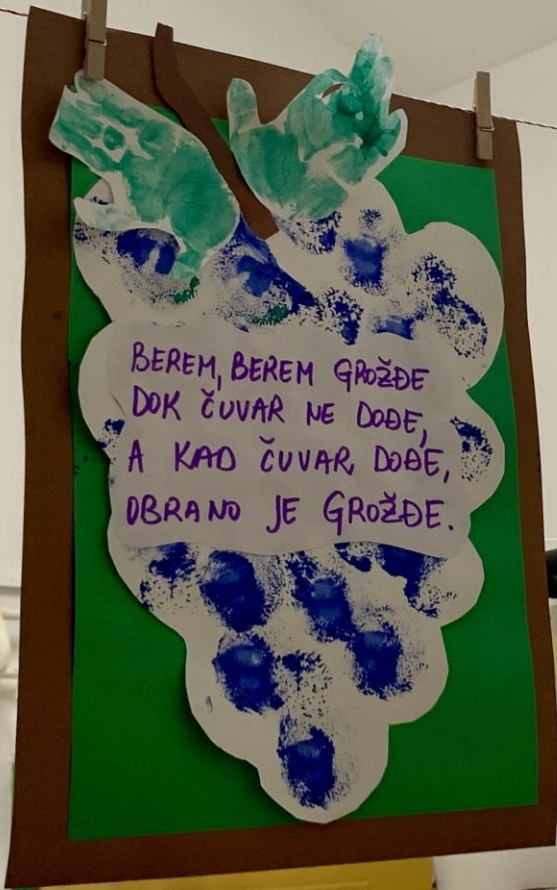 BEREM, BEREM GROŽĐE
DOK ČUVAR NE DOĐE,
A KAD ČUVAR DOĐE,
OBRANO JE GROŽĐE.